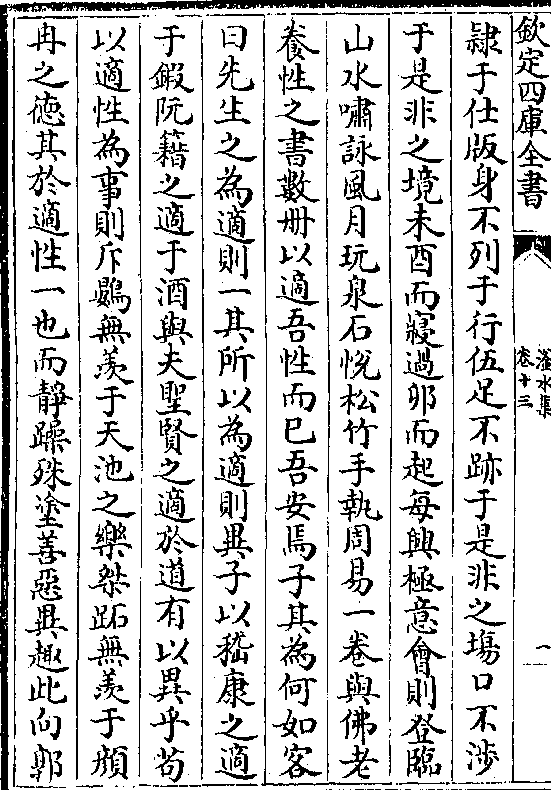 欽定四庫全書
滏水集
卷十三
一
隷于仕版身不列于行伍足不跡于是非之塲口不渉
于是非之境未酉而寢過卯而起每興極意會則登臨
山水嘯詠風月玩泉石悅松竹手執周易一卷與佛老
養性之書數册以適吾性而已吾安焉子其為何如客
曰先生之為適則一其所以為適則異子以嵇康之適
于鍜阮籍之適于酒與夫聖賢之適於道有以異乎茍
以適性為事則斥鷃無羨于天池之樂桀跖無羨于顔
冉之德其於適性一也而靜躁殊塗善惡異趣此向郭